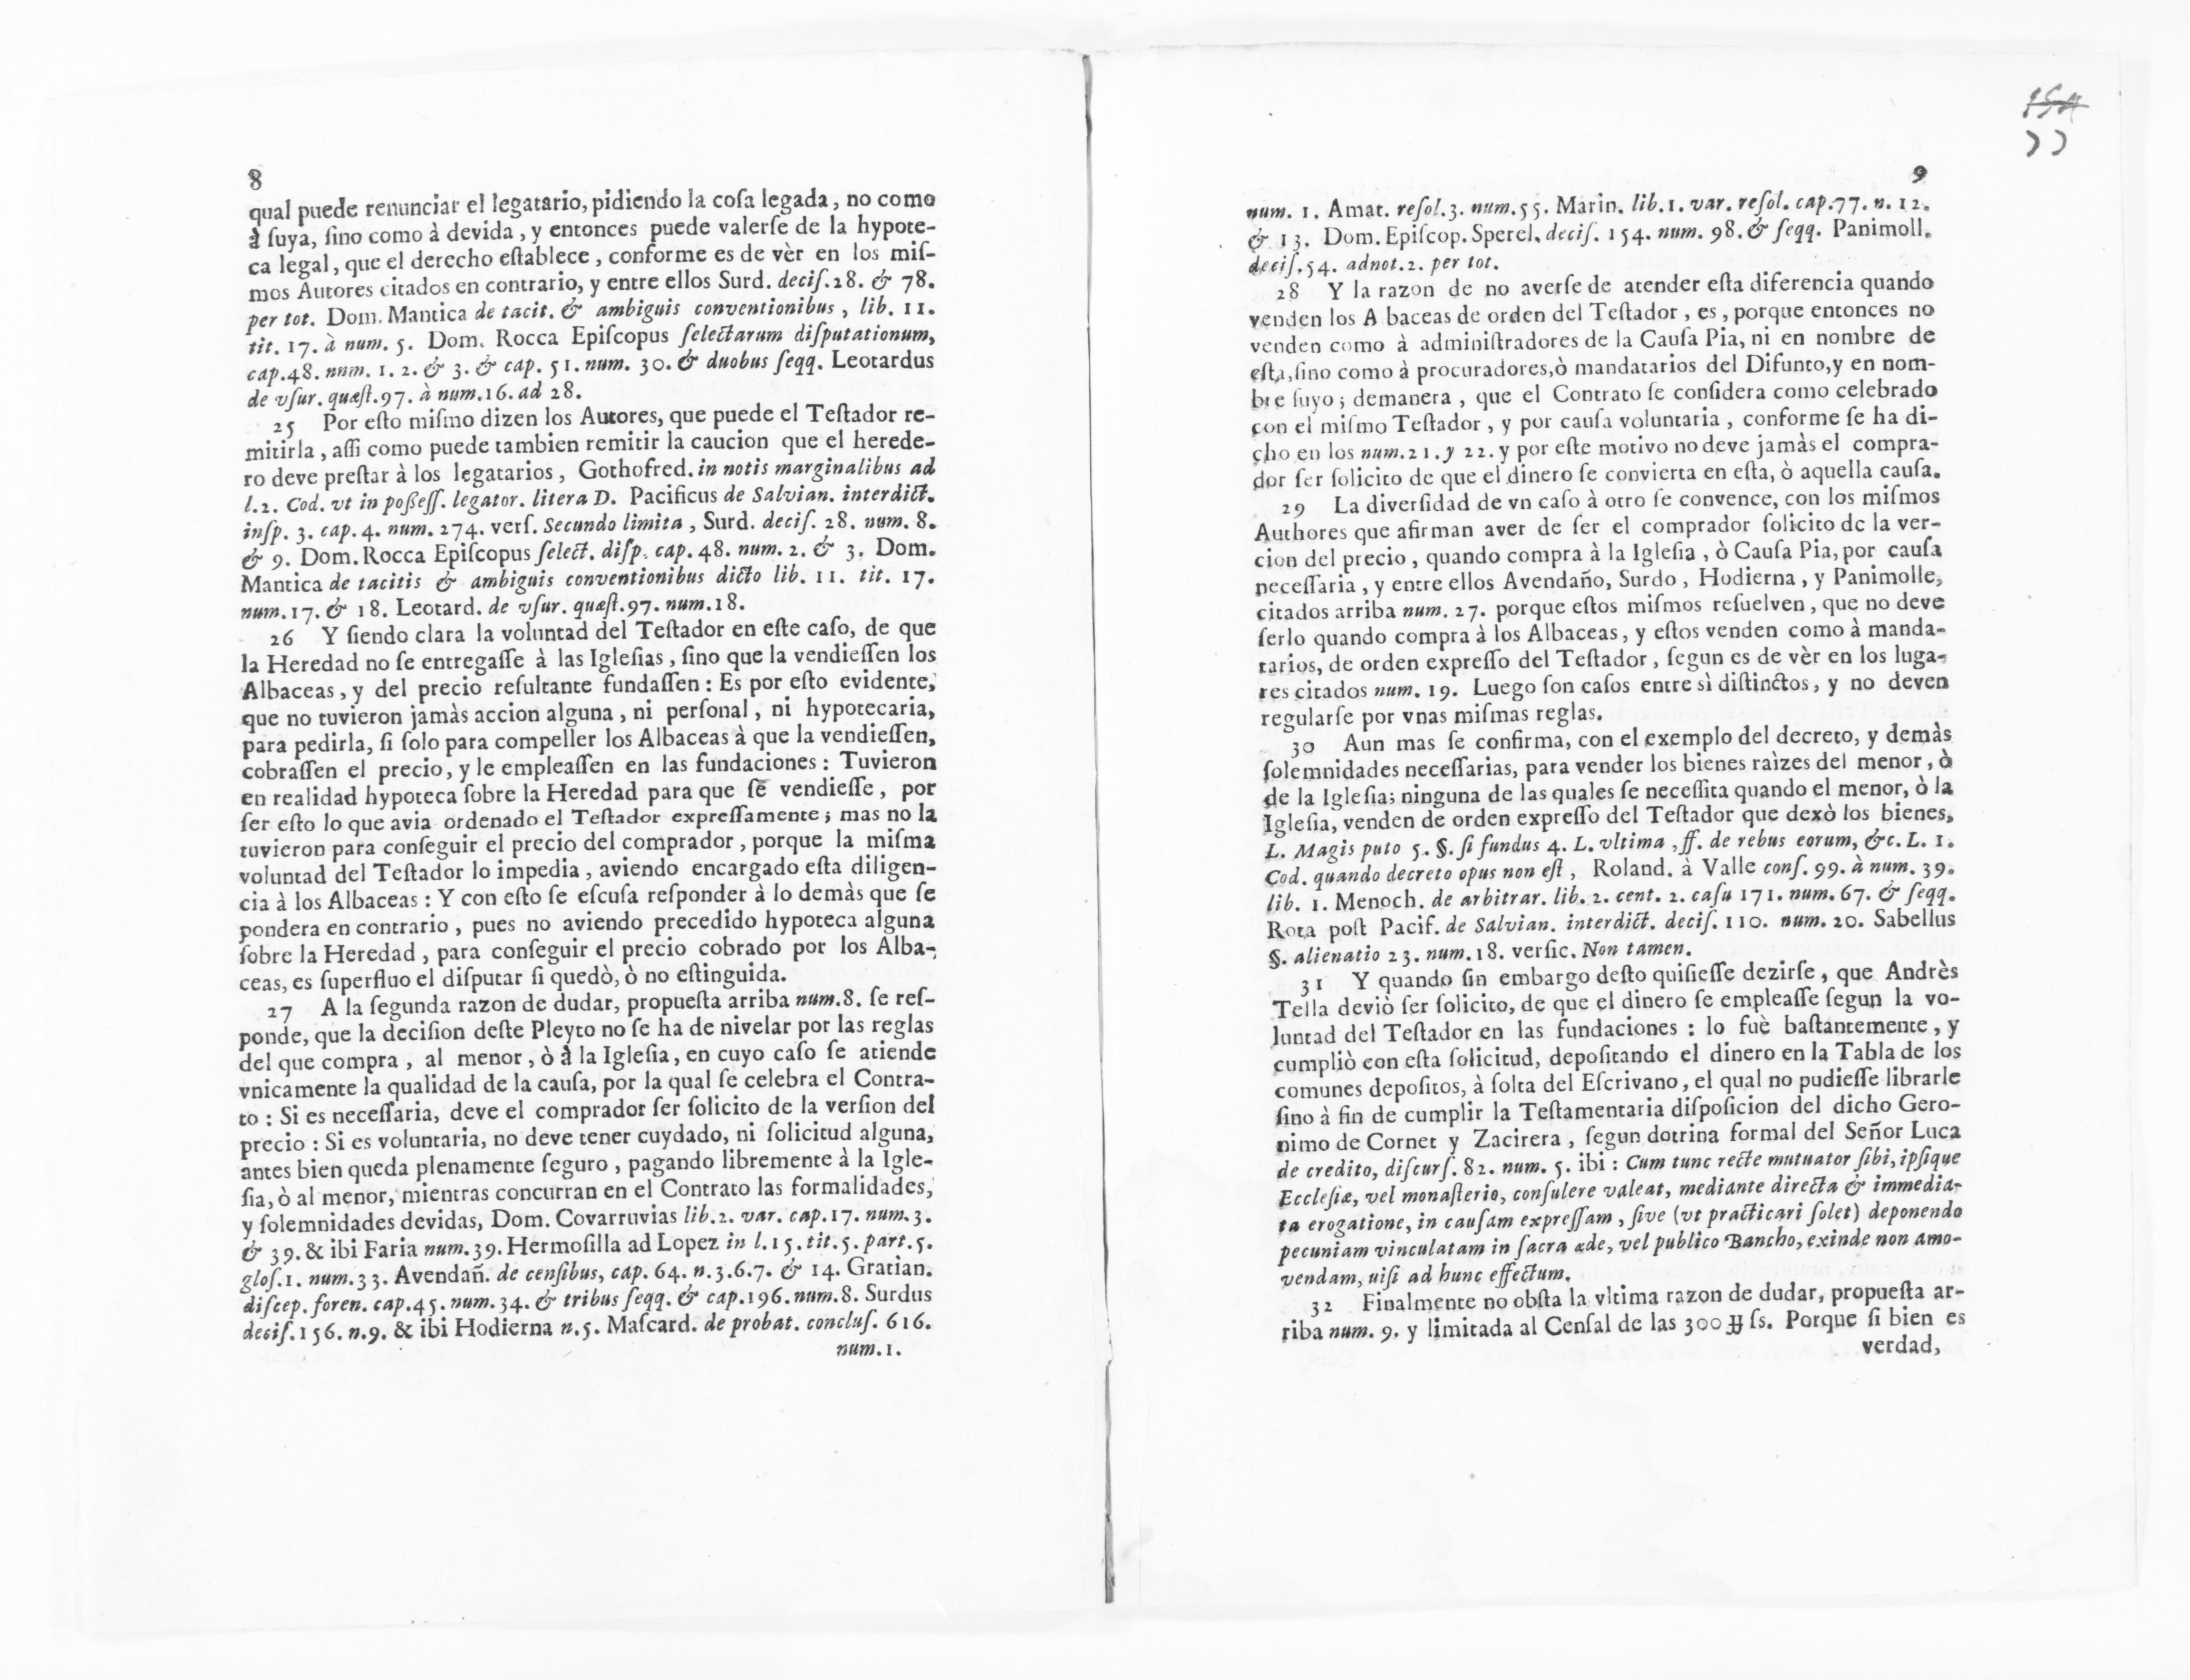 8
qual puede renunciar el legatario, pidiendo la coſa legada, no como
à ſuya, ſino como à devida, y entonces puede valerſe de la hypote-
ca legal, que el derecho eſtablece, conforme es de vèr en los miſ-
mos Autores citados en contrario, y entre ellos Surd. deciſ.28. & 78.
per tot. Dom. Mantica de tacit. & ambiguis conventionibus, lib. 11.
tit. 17. à num. 5. Dom. Rocca Epiſcopus ſelectarum diſputationum,
cap.48. nnm. 1. 2. & 3. & cap. 51. num. 30. & duobus ſeqq. Leotardus
de vſur. quæſt.97. à num.16. ad 28.
25 Por eſto miſmo dizen los Autores, que puede el Teſtador re-
mitirla, aſſi como puede tambien remitir la caucion que el herede-
ro deve preſtar à los legatarios, Gothofred. in notis marginalibus ad
l.2. Cod. vt in poßeſſ. legator. litera D. Pacificus de Salvian. interdict.
inſp. 3. cap. 4. num. 274. verſ. Secundo limita, Surd. deciſ. 28. num. 8.
& 9. Dom. Rocca Epiſcopus ſelect. diſp. cap. 48. num. 2. & 3. Dom.
Mantica de tacitis & ambiguis conventionibus dicto lib. 11. tit. 17.
num.17. & 18. Leotard. de vſur. quæſt.97. num.18.
26 Y ſiendo clara la voluntad del Teſtador en eſte caſo, de que
la Heredad no ſe entregaſſe à las Igleſias, ſino que la vendieſſen los
Albaceas, y del precio reſultante fundaſſen: Es por eſto evidente,
que no tuvieron jamàs accion alguna, ni perſonal, ni hypotecaria,
para pedirla, ſi ſolo para compeller los Albaceas à que la vendieſſen,
cobraſſen el precio, y le empleaſſen en las fundaciones: Tuvieron
en realidad hypoteca ſobre la Heredad para que ſe vendieſſe, por
ſer eſto lo que avia ordenado el Teſtador expreſſamente; mas no la
tuvieron para conſeguir el precio del comprador, porque la miſma
voluntad del Teſtador lo impedia, aviendo encargado eſta diligen-
cia à los Albaceas: Y con eſto ſe eſcuſa reſponder à lo demàs que ſe
pondera en contrario, pues no aviendo precedido hypoteca alguna
ſobre la Heredad, para conſeguir el precio cobrado por los Alba-
ceas, es ſuperfluo el diſputar ſi quedò, ò no eſtinguida.
27 A la ſegunda razon de dudar, propueſta arriba num.8. ſe reſ-
ponde, que la deciſion deſte Pleyto no ſe ha de nivelar por las reglas
del que compra, al menor, ò à la Igleſia, en cuyo caſo ſe atiende
vnicamente la qualidad de la cauſa, por la qual ſe celebra el Contra-
to: Si es neceſſaria, deve el comprador ſer ſolicito de la verſion del
precio: Si es voluntaria, no deve tener cuydado, ni ſolicitud alguna,
antes bien queda plenamente ſeguro, pagando libremente à la Igle-
ſia, ò al menor, mientras concurran en el Contrato las formalidades,
y ſolemnidades devidas, Dom. Covarruvias lib.2. var. cap.17. num.3.
& 39. & ibi Faria num.39. Hermoſilla ad Lopez in l.15. tit.5. part.5.
gloſ.1. num.33. Avendañ. de cenſibus, cap. 64. n.3.6.7. & 14. Gratian.
diſcep. foren. cap.45. num.34. & tribus ſeqq. & cap.196. num.8. Surdus
deciſ.156. n.9. & ibi Hodierna n.5. Maſcard. de probat. concluſ. 616.
num.1.
9
num. 1. Amat. reſol.3. num.55. Marin. lib.1. var. reſol. cap.77. n. 12.
& 13. Dom. Epiſcop. Sperel. deciſ. 154. num. 98. & ſeqq. Panimoll.
deciſ.54. adnot.2. per tot.
28 Y la razon de no averſe de atender eſta diferencia quando
venden los A baceas de orden del Teſtador, es, porque entonces no
venden como à adminiſtradores de la Cauſa Pia, ni en nombre de
eſta, ſino como à procuradores, ò mandatarios del Difunto, y en nom-
bre ſuyo; demanera, que el Contrato ſe conſidera como celebrado
con el miſmo Teſtador, y por cauſa voluntaria, conforme ſe ha di-
cho en los num.21. y 22. y por eſte motivo no deve jamàs el compra-
dor ſer ſolicito de que el dinero ſe convierta en eſta, ò aquella cauſa.
29 La diverſidad de vn caſo à otro ſe convence, con los miſmos
Authores que afirman aver de ſer el comprador ſolicito de la ver-
cion del precio, quando compra à la Igleſia, ò Cauſa Pia, por cauſa
neceſſaria, y entre ellos Avendaño, Surdo, Hodierna, y Panimolle,
citados arriba num. 27. porque eſtos miſmos reſuelven, que no deve
ſerlo quando compra à los Albaceas, y eſtos venden como à manda-
tarios, de orden expreſſo del Teſtador, ſegun es de vèr en los luga-
res citados num. 19. Luego ſon caſos entre sì diſtinctos, y no deven
regularſe por vnas miſmas reglas.
30 Aun mas ſe confirma, con el exemplo del decreto, y demàs
ſolemnidades neceſſarias, para vender los bienes raìzes del menor, ò
de la Igleſia; ninguna de las quales ſe neceſſita quando el menor, ò la
Igleſia, venden de orden expreſſo del Teſtador que dexò los bienes,
L. Magis puto 5. §. ſi fundus 4. L. vltima, ff. de rebus eorum, &c. L. 1.
Cod. quando decreto opus non eſt, Roland. à Valle conſ. 99. à num. 39.
lib. 1. Menoch. de arbitrar. lib. 2. cent. 2. caſu 171. num. 67. & ſeqq.
Rota poſt Pacif. de Salvian. interdict. deciſ. 110. num. 20. Sabellus
§. alienatio 23. num.18. verſic. Non tamen.
31 Y quando ſin embargo deſto quiſieſſe dezirſe, que Andrès
Tella deviò ſer ſolicito, de que el dinero ſe empleaſſe ſegun la vo-
luntad del Teſtador en las fundaciones: lo fuè baſtantemente, y
cumpliò con eſta ſolicitud, depoſitando el dinero en la Tabla de los
comunes depoſitos, à ſolta del Eſcrivano, el qual no pudieſſe librarle
ſino à fin de cumplir la Teſtamentaria diſpoſicion del dicho Gero-
nimo de Cornet y Zacirera, ſegun dotrina formal del Señor Luca
de credito, diſcurſ. 82. num. 5. ibi: Cum tunc recte mutuator ſibi, ipſique
Eccleſiæ, vel monaſterio, conſulere valeat, mediante directa & immedia-
ta erogatione, in cauſam expreſſam, ſive (vt practicari ſolet) deponendo
pecuniam vinculatam in ſacra æde, vel publico Bancho, exinde non amo-
vendam, uiſi ad hunc effectum.
32 Finalmente no obſta la vltima razon de dudar, propueſta ar-
riba num. 9. y limitada al Cenſal de las 300 ſs. Porque ſi bien es
verdad,